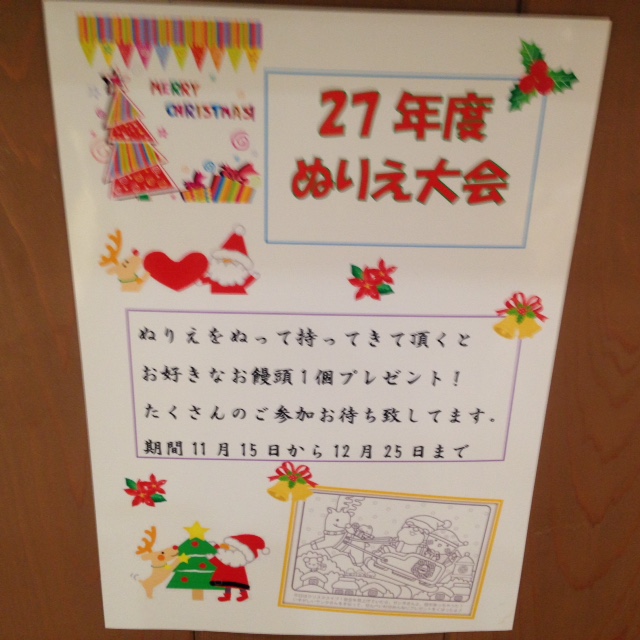 MERRY
CHRISTMAS!
27年度
ぬりえ大会
ぬりえをぬって持ってきて頂くと
お好きなお饅頭1個プレゼント!
たくさんのご参加お待ち致してます。
期間11月15日から12月25日まで